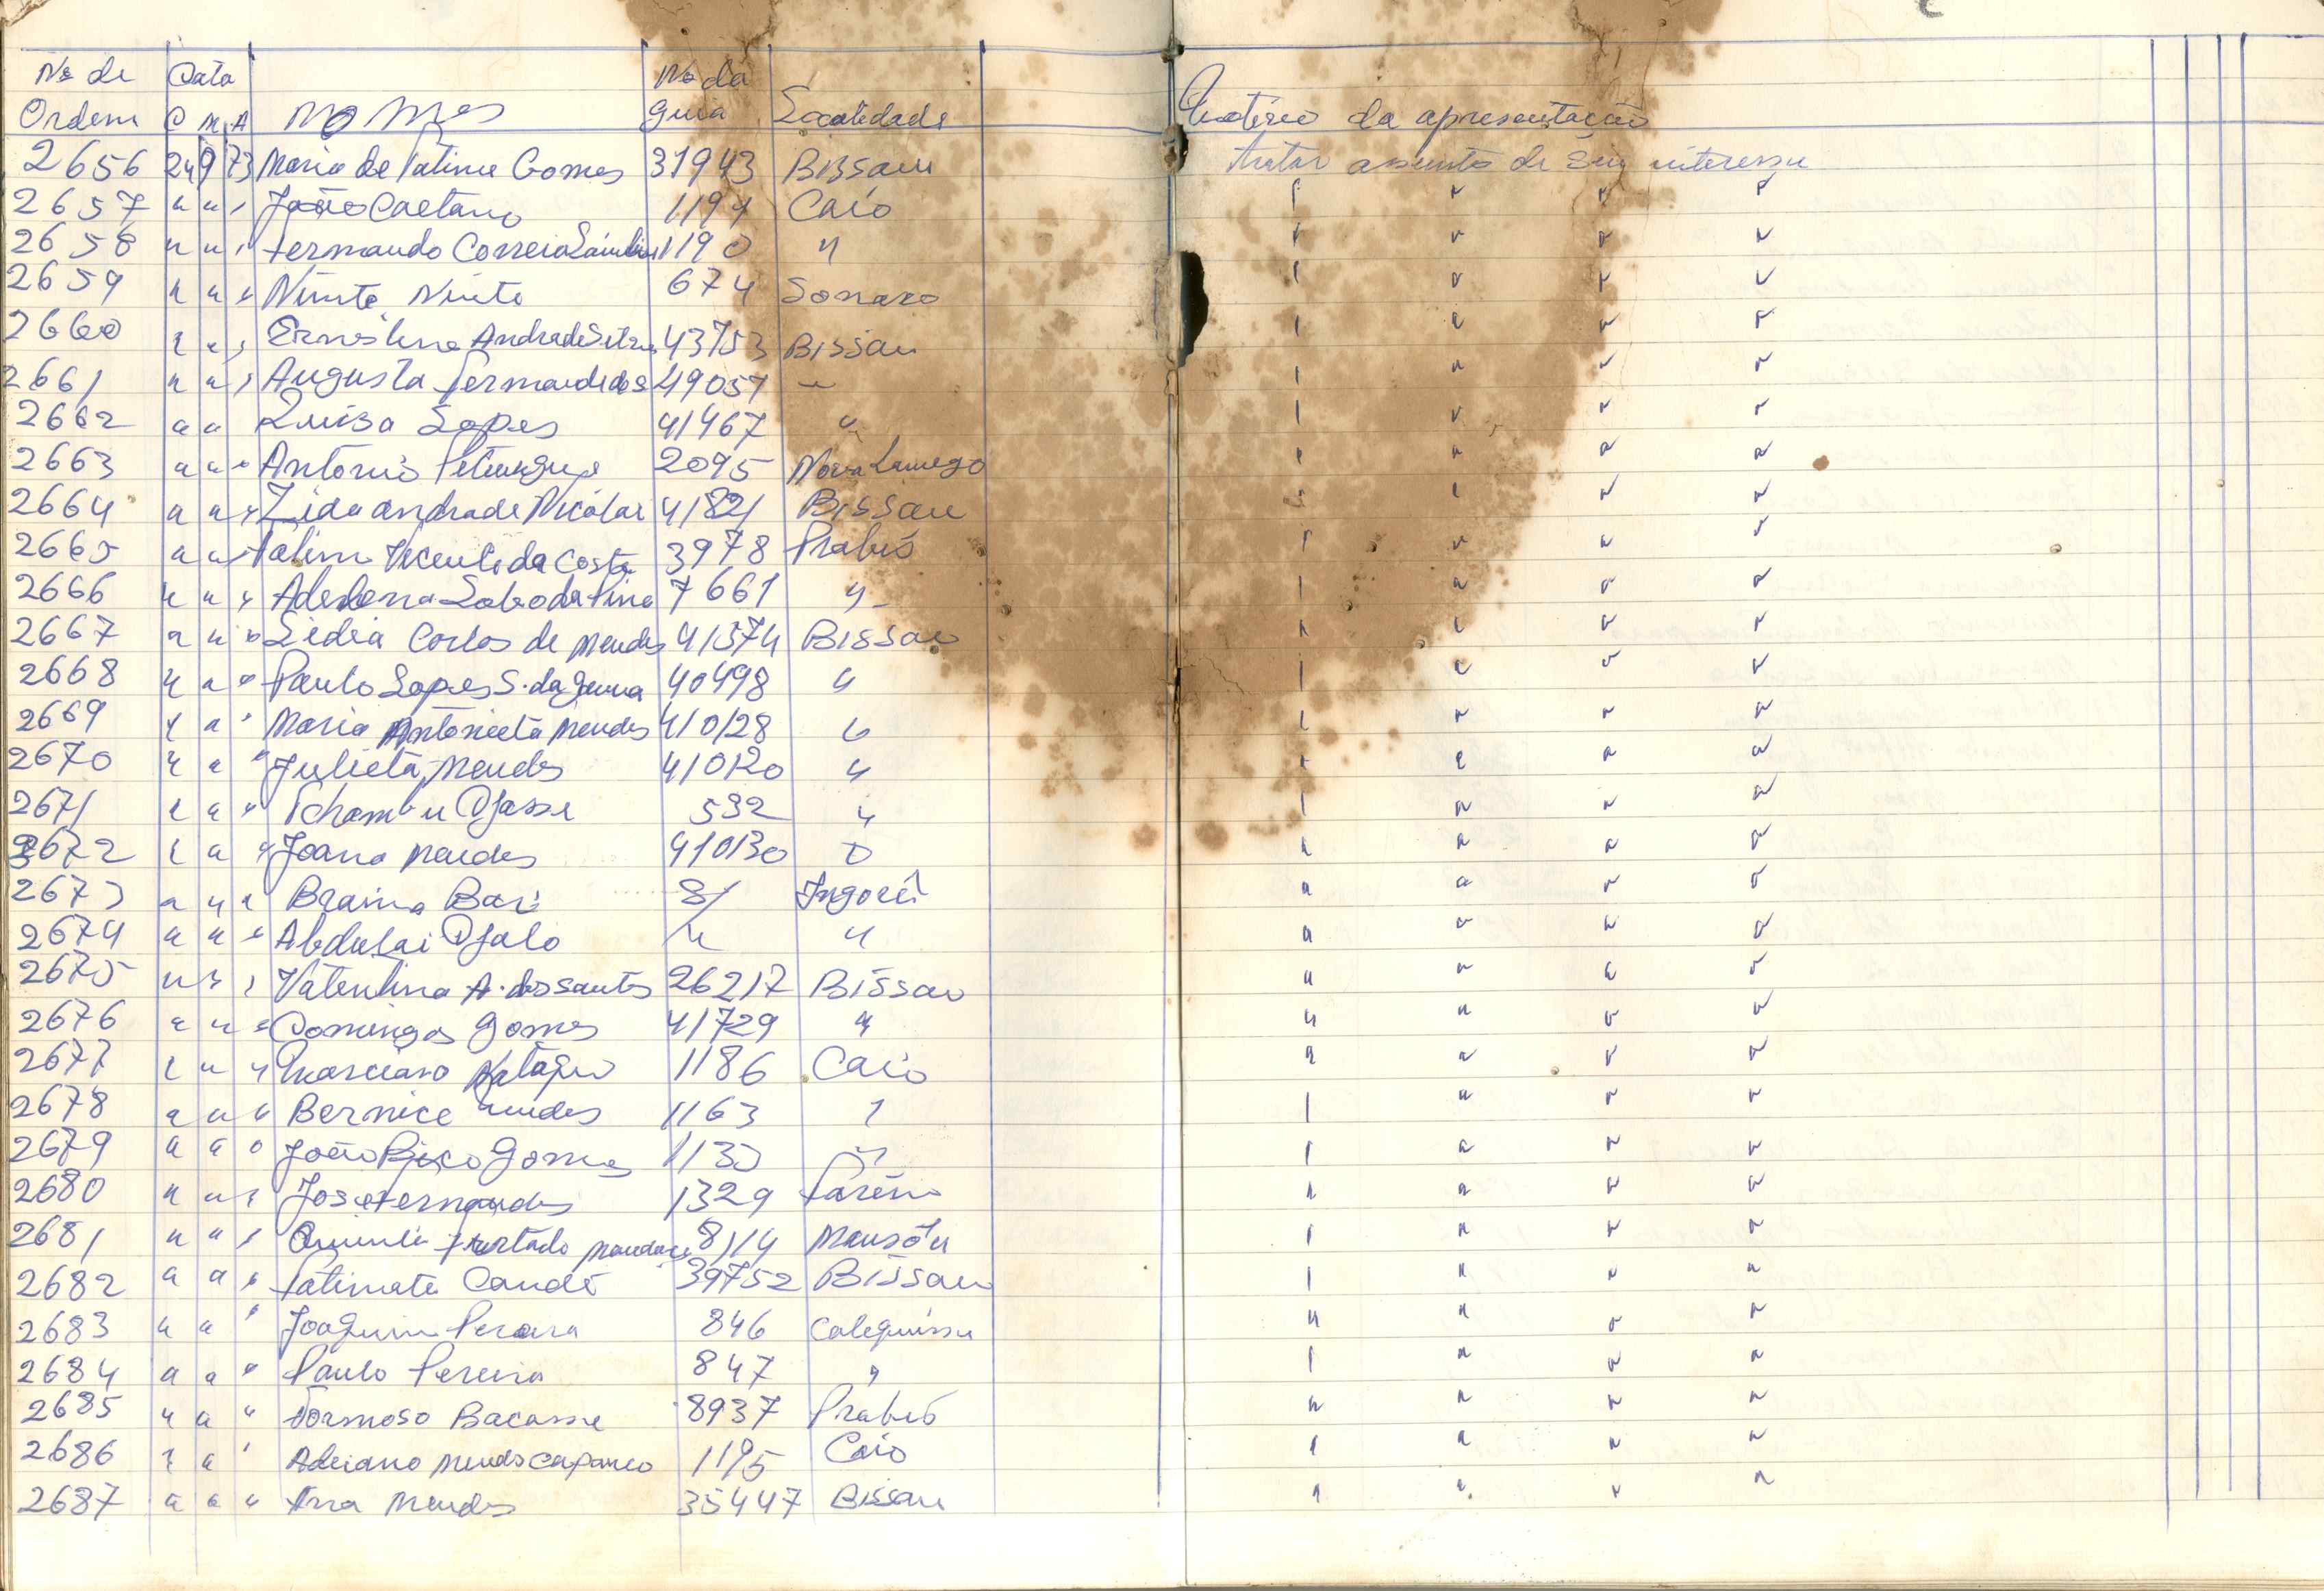 No de Data No da
Ordem D M A Nomes guia Localidade Motivo da apresentação
2656 24 9 73 Maria de Fatima Gomes 31943 Bissau tratar assunto de seu interesse
2657 " " " João Caetano 1194 Caió " " " "
2658 " " " Fernando Correia 1190 " " " " "
2659 " " " Ninte Ninte 674 Sonaco " " " "
2660 " " " Ernestina Andrade Silva 43753 Bissau " " " "
2661 " " " Augusta Fernandes 49057 " " " " "
2662 " " Luisa Lopes 41467 " " " " "
2663 " " " Antonio 2095 Nova Lamego " " " "
2664 " " " Zida Andrade Nicolai 41821 Bissau " " " "
2665 " " " Fatima Vicente da Costa 3978 Prabis " " " "
2666 " " " da Pina 7661 " " " " "
2667 " " " Lidia Carlos de Mendes 41574 Bissau " " " "
2668 " " " Paulo Lopes S. da Gama 40498 " " " " "
2669 " " " Maria Antonieta Mendes 410128 " " " " "
2670 " " " Julieta Mendes 410120 " " " " "
2671 " " " Tchambu Djasse 532 " " " " "
2672 " " " Joana Mendes 410130 " " " " "
2673 " " " Braima Bari S/ Ingoré " " " "
2674 " " " Abdulai Djalo " " " " " "
2675 " " " Valentina A. dos Santos 26217 Bissau " " " "
2676 " " " Domingos Gomes 41729 " " " " "
2677 " " " Marciano 1186 Caió " " " "
2678 " " " Bernice Mendes 1163 " " " " "
2679 " " " João Bico Gomes 1133 " " " " "
2680 " " " José Fernandes 1329 Farim " " " "
2681 " " " Furtado 8114 Mansôa " " " "
2682 " " " Fatimata Candé 39752 Bissau " " " "
2683 " " " Joaquim Pereira 846 Calequisse " " " "
2684 " " " Paulo Pereira 847 " " " " "
2685 " " " Formoso Bacasse 8937 Prabis " " " "
2686 " " " Adriano Mendes Capanco 1195 Caió " " " "
2687 " " " Ana Mendes 35447 Bissau " " " "